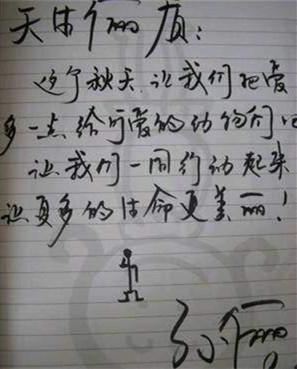 天生丽质：
这个秋天,让我们把爱
多一点给可爱的动物们吧
让我们一同行动起来
让更多的生命更美丽！
孙俪